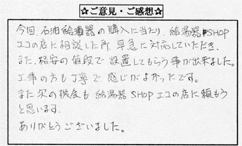 ☆ご意見・ご感想☆
今回、石油給湯器の購入に当たり、給湯器SHOP
エコの店に相談した所 早急に対応していただき、
また、格安の値段で設置してもらう事が出来ました。
工事の方も丁寧で感じがよかったです。
また次の機会も給湯器SHOPエコの店に頼もう
と思います。
ありがとうございました。